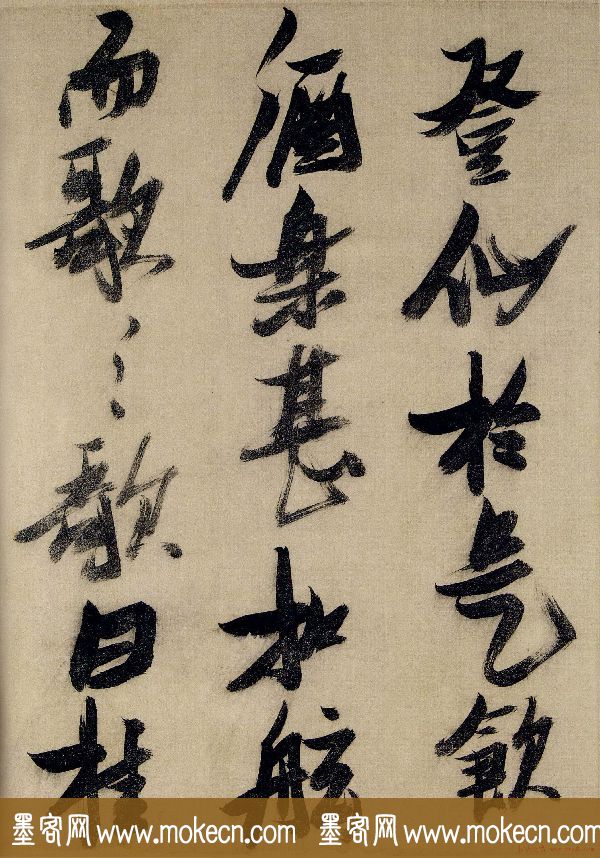 登仙於是飲
酒樂甚扣舷
而歌之歌曰桂
墨客网 www.mokecn.com 墨客网 www.mokecn.com